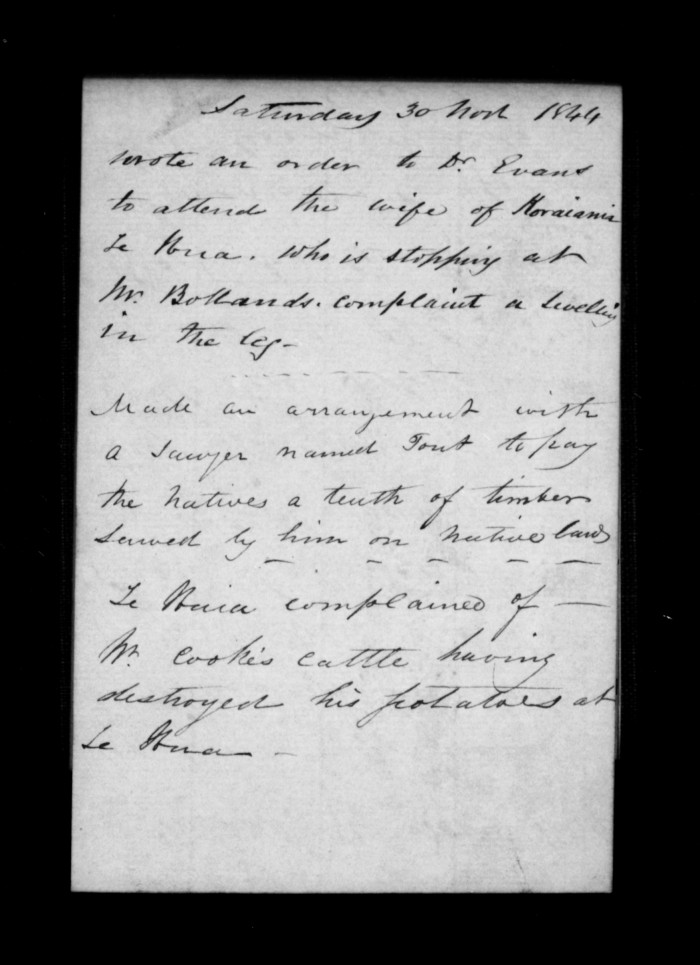 Saturday 30 Novr 1844
wrote an order to Dr. Evans
to attend the wife of
Te Hua. who is stopping at
Mr. Bollands. complaint a swelling
in the leg -
Made an arrangement with
a sawyer named Tout to pay
the natives a tenth of timber
sawed by him on native land
Te Huia complained of —
Mr. Cooke's cattle having
destroyed his potatoes at
Te Hua -